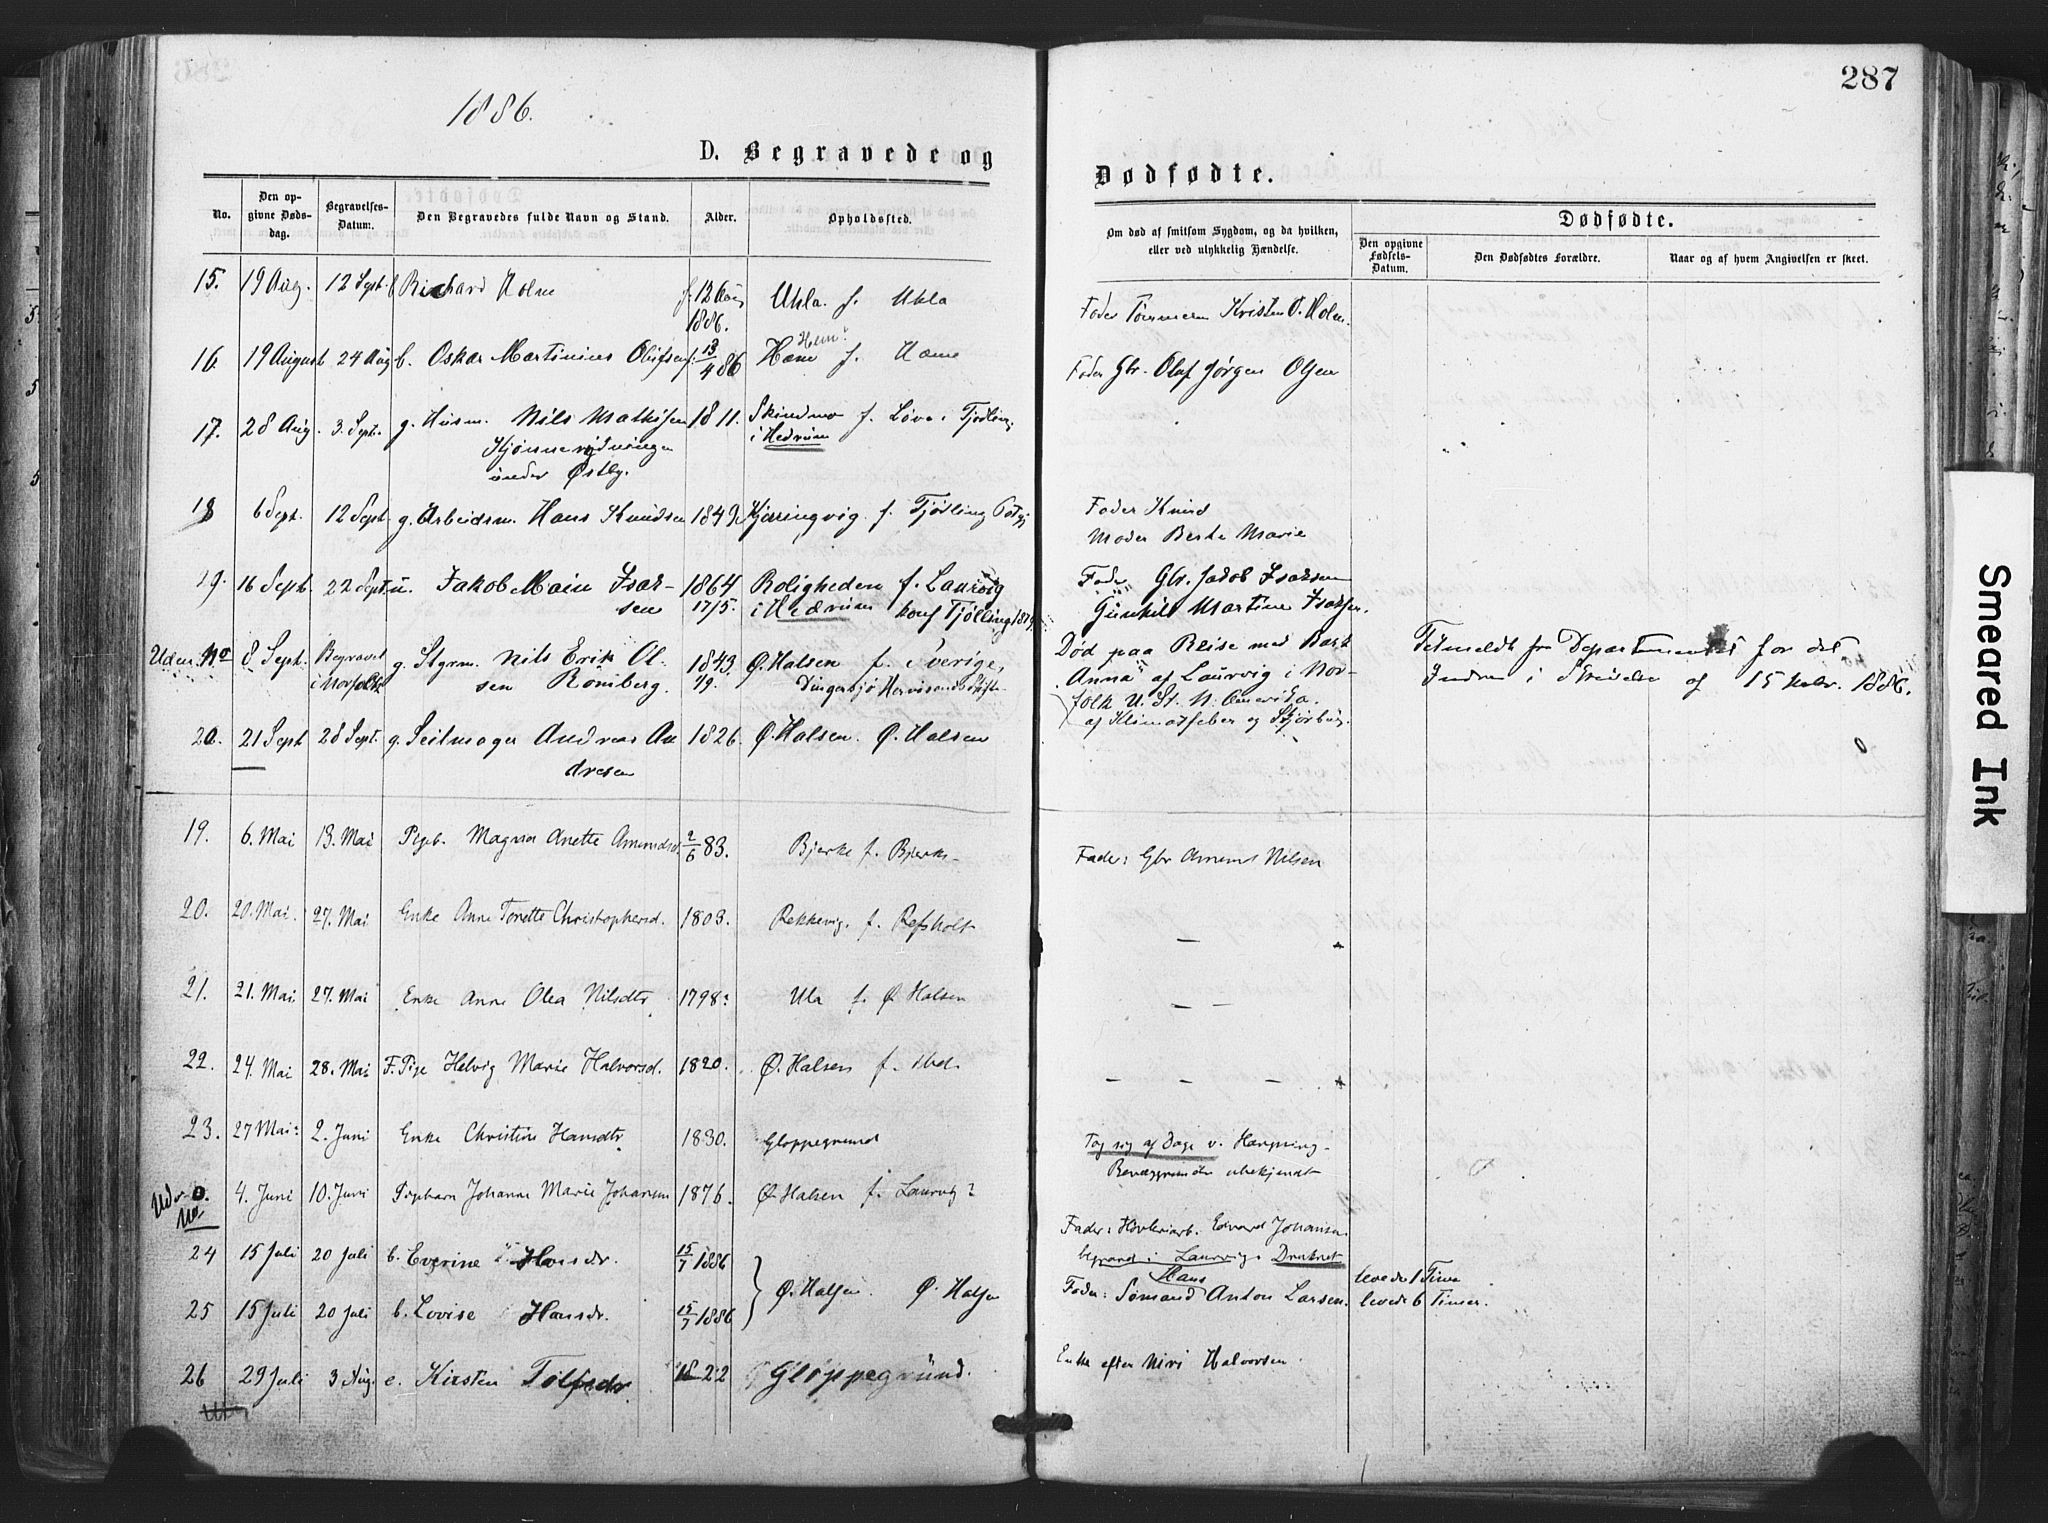 287
1886.
D. Begravede og Dødfødte.
No. Den opgivne Dødsdag. Begravelses-Datum. Den Begravedes fulde Navn og Stand. Alder. Opholdssted. Om død af smitsom Sygdom, og da hvilken, eller ved ulykkelig Hændelse. Dødfødte. Den opgivne Fødsels-Datum. Den Dødfødtes Forældre. Naar og af hvem Angivelsen er skeet.
15. 19 Aug. 12 Sept. b. Richard Holm f. 12 Aug Uhla f. Uhla Fader Tømmerm Kristen O. Holm.
1886.
Hem
16. 19 August 24 Aug b. Oskar Martinius Olufsen f. 13/4 86 Hæm f. Hæm Fader Gbr. Olaf Jørgen Olsen
17. 28 Aug. 3. Sept. g. Husm. Nils Mathisen 1811. Skindmo f. Løve i Tjødling
i Hedrum
under Østby.
18 6 Sept. 12 Sept g. Arbeidsm. Hans Knudsen 1849 Kjærringvig f. Tjødling Fader Knud
Moder Berte Marie
19. 16 Sept. 22 Sept u. Jakob Main Isak- 1864 Roligheden f. Laurvig Fader Gbr. Jacob Isaksen
sen 17/5. i Hedrum konf Tjølling Gunhil Martine Isaksen.
Uden No 8 Sept. Begravet g. Styrm. Nils Erik Ol- 1843 Ø. Halsen f. Sverige, Død paa Reise med Bark Tilmeldt fr Departementet for det
i Norfolk sen Roniberg. /9. Dingersjø "Anna" af Laurvig i Nor- Indre i Skrivelse af 15 1886.
folk U. St. N. Amerika.
af Klimatfeber og Skjørbug.
20. 21 Sept 28 Sept. g. Seilmager Andreas An 1826. Ø. Halsen. Ø. Halsen
dresen
19. 6. Mai 13. Mai Pigeb. Magna Anette Amundsd. 2/6 83. Bjerke f. Bjerke Fader: Gbr Anemt Nilsen
20. 20. Mai. 27. Mai Enke Anne Tonette Christophersd. 1803. Rekkevig. f. Refsholt —
21. 21. Mai 27. Mai Enke Anne Olea Nilsdtr 1798: Ula f. Ø. Halsen — —
22. 24. Mai 28. Mai F. Pige Helvig Marie Halvorsd. 1820. Ø. Halsen f. ibid. — — —
23. 27 Mai: 2. Juni Enke Christine Hansdtr 1830. Gloppegrund Tog sig af Dage v. Hængning
Bevæggrunden ubekjendt
Uden No. 4. Juni 10. Juni Pigebarn Johanne Marie Johansen 1876. Ø. Halsen f. Laurvig? Fader: Høvleriarb. Edvard Johansen
begravd i Laurvig. Druknet
24 15 Juli 20 Juli b. Everine Hansdr. 15/7 1886 Hans levede 1 Time
Ø. Halsen. Ø. Halsen Fader: Sømand Anton Larsen.
25 15 Juli 20 Juli b. Lovise Hansdr. 15/7 1886 levede 6 Timer.
26 29 Juli 3 Aug. e. Kirsten Tolfsdr 1822 Gloppegrund. Enke efter Halvorsen.
Smeared Ink